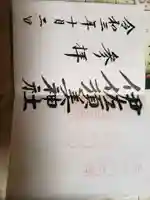 令和三年十月二日
参拝
伊佐須美神社